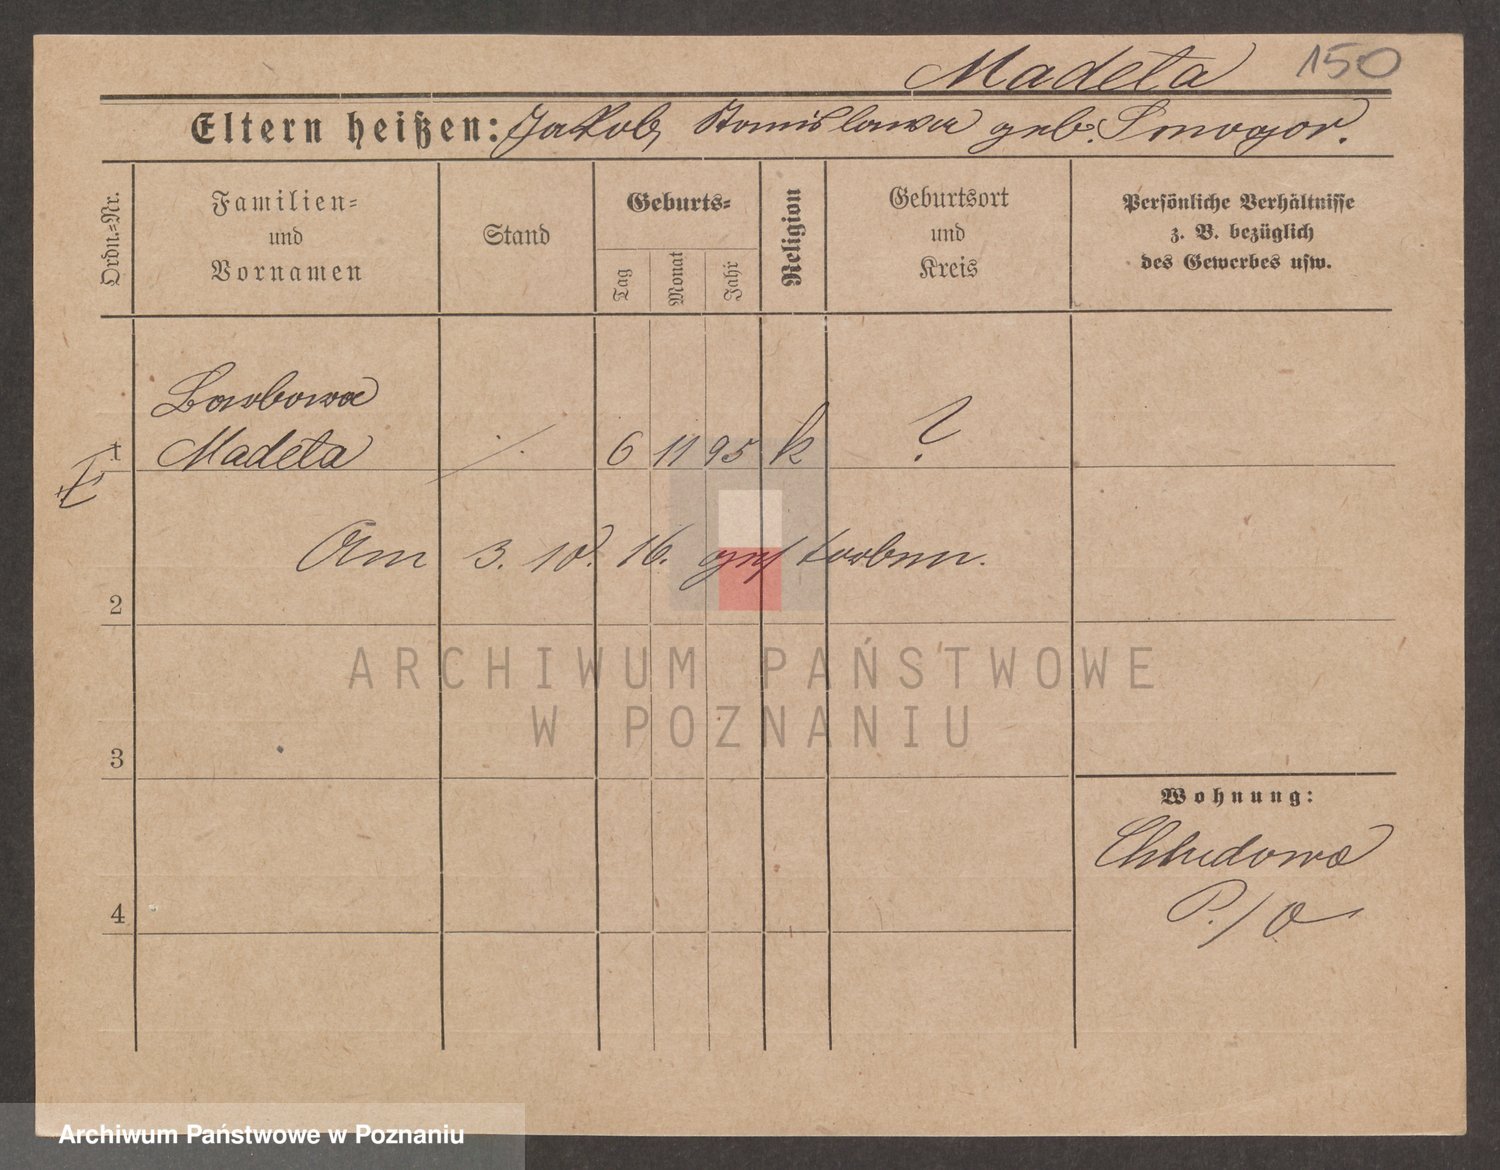 Madeta 150
Eltern heißen: Jakob, Stanislawa geb. Smogor.
Ordn.-Nr.
Familien- und Vornamen
Stand
Geburts-
Tag
Monat
Jahr
Religion
Geburtsort und Kreis
Persönliche Verhältnisse
z. B. bezüglich
des Gewerbes usw.
Barbara
1 Madeta ⁒ 6 11 95 k ?
Am 3. 10. 16. gestorben.
2
ARCHIWUM PAŃSTWOWE
W POZNANIU
3
Wohnung:
Chludowo
4
P./O
Archiwum Państwowe w Poznaniu